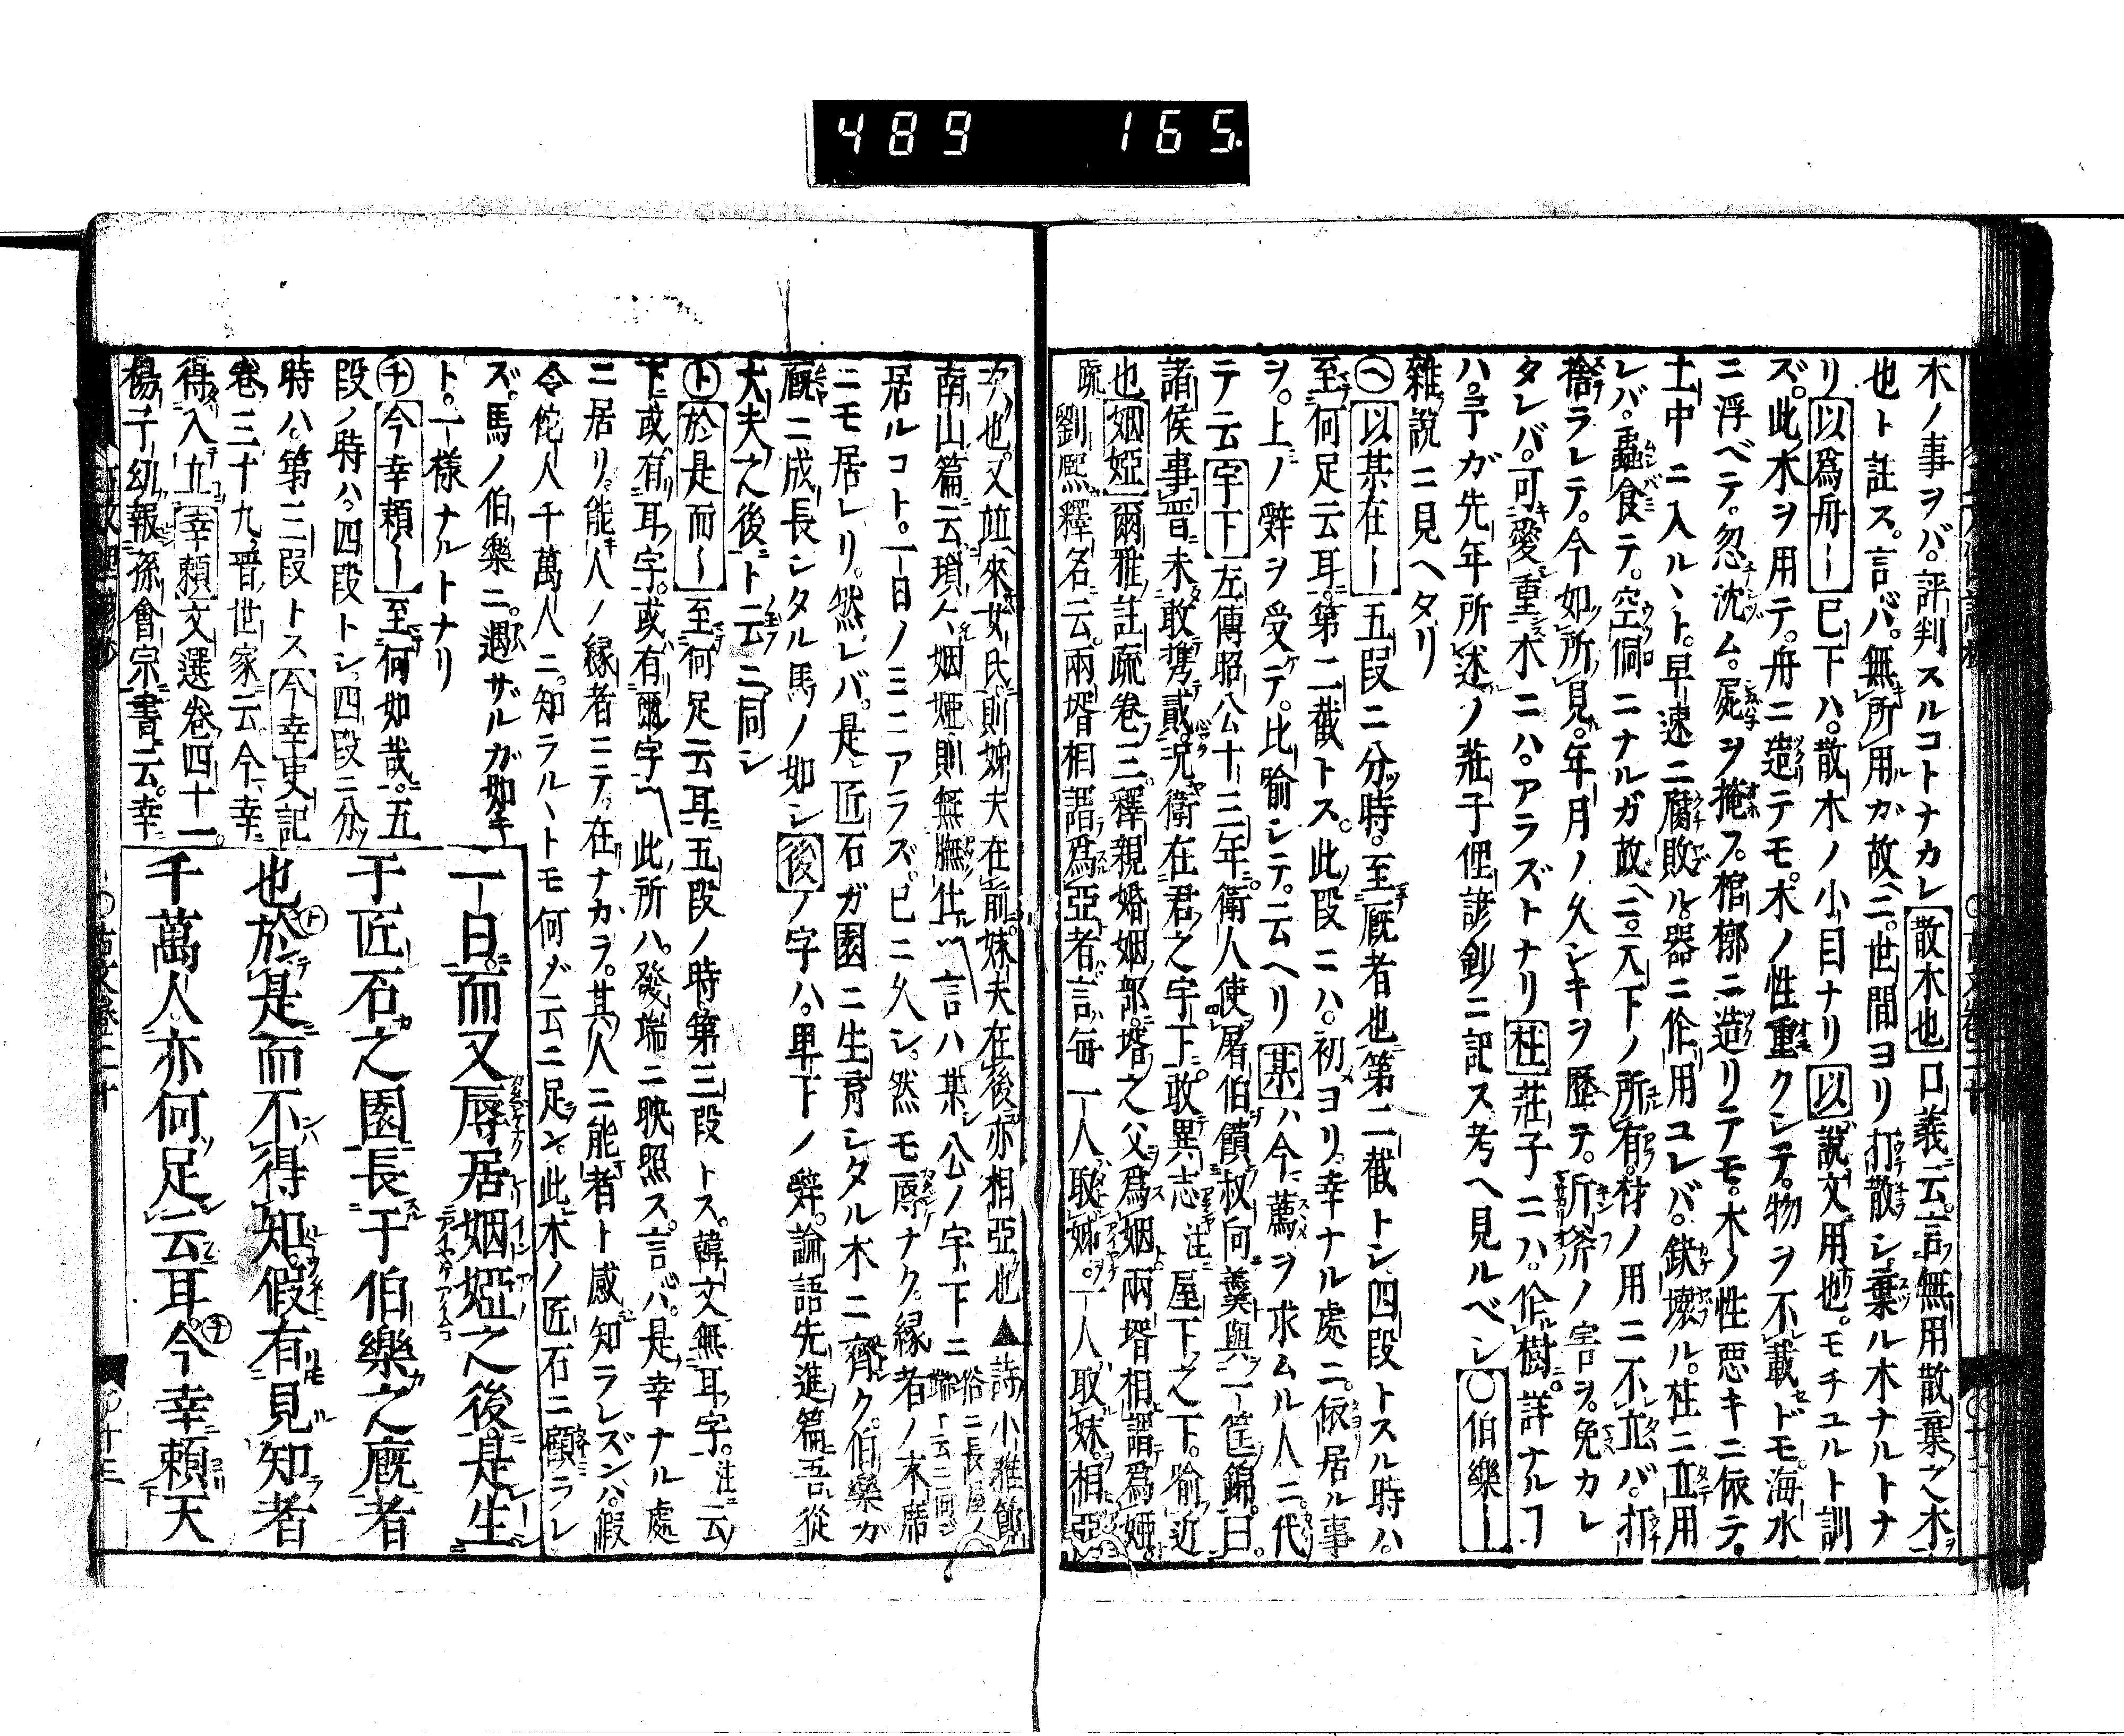 489 165.
木ノ事ヲバ。評判スルコトナカレ 散木也 口義云。言無用散棄之木
也ト註ス。言バ。無所用カ故ニ。世間ヨリ打散シ棄ル木ナルトナ
リ 以爲舟ー 已下ハ。散木ノ小目ナリ 以 說文用也。モチユルト訓
ズ。此木ヲ用テ。舟ニ造テモ。木ノ性重クシテ。物ヲ不載ドモ。海水
ニ浮ベテ。忽沈ム。屍ヲ掩フ。棺槨ニ造リテモ。木ノ性悪キニ依テ。
土中ニ入ルヽト。早速ニ腐敗ル。器ニ作用ユレバ。缺壞ル。柱ニ立用
レバ。蟲食テ。空侗ニナルガ故ニ。天下ノ所有。材ノ用ニ不立バ。打
捨ラレテ。今如所見。年月ノ久シキヲ歷テ。斤斧ノ害ヲ免カレ
タレバ。可愛重木ニハ。アラズトナリ 柱 莊子ニハ。作樹詳ナルヿ
ハ。予ガ先年所述ノ莊子俚諺鈔ニ記ス考ヘ見ルベシ 〇伯樂ー
雜說ニ見ヘタリ
ヘ 以某在ー 五段ニ分時。至厩者也第二截トシ。四段トスル時ハ。
至何足云耳。第二截トス。此段ニハ。初ヨリ。幸ナル處ニ。依居ル事
ヲ。上ノ辭ヲ受テ。比喻シテ。云ヘリ 某 ハ今薦ヲ求ムル人ニ。代
テ云 宇下 左傳昭公十三年。衛人使屠伯饋叔向羹與一筐錦。曰。
諸侯事晋未敢擕貳。况衛在君之宇下。敢異志 注 屋下之下。喻近
也 姻婭 爾雅註疏卷三。釋親婚姻部。壻之父爲姻兩壻相謂爲婭。
疏 劉熙釋名云。兩壻相謂爲亞者言每一人取姊。一人取妹。相亞
次也。又並來女氏則姊夫在前妹夫在後亦相亞也▲詩小雅節
南山篇云瑣々姻婭則無膴仕 言ハ某公ノ宇下ニ 俗ニ長屋ノ端ト云ニ同シ
居ルコト。一日ノミニアラズ。已ニ久シ。然モ辱ナク。緣者ノ末席
ニモ居レリ。然レバ。是匠石ガ園ニ生育シタル木ニ齊ク。伯樂ガ
厩ニ成長シタル馬ノ如シ 後 ノ字ハ。畢下ノ辭。論語先進篇吾從
大夫之後ト云ニ同シ
ト 於是而ー 至何足云耳五段ノ時第三段トス。韓文無耳字。注云
下或有耳字。或有爾字 此所ハ。發端ニ映照ス。言バ。是幸ナル處
ニ居リ。能人ノ緣者ニテ。在ナカラ。其人ニ能者ト感知ラレズンハ。假
令佗人千萬人ニ。知ラルヽトモ何ゾ云ニ足ン。此木ノ匠石ニ顧ラレ
ズ。馬ノ伯樂ニ。遇ザルガ如キ
ト。一樣ナルトナリ
チ 今幸賴ー 至何如哉。五
段ノ時ハ。四段トシ。四段ニ分
時ハ。第三段トス 今幸 史記
卷三十九。晋世家云。今幸
得入立 幸賴 文選卷四十一。
楊子幼報孫會宗書云。幸
一日。而又辱居姻婭之後。是生
于匠石之園長于伯樂之厩者
也。於是而不得知。假有見知者
千萬人亦何足云耳。今幸賴天